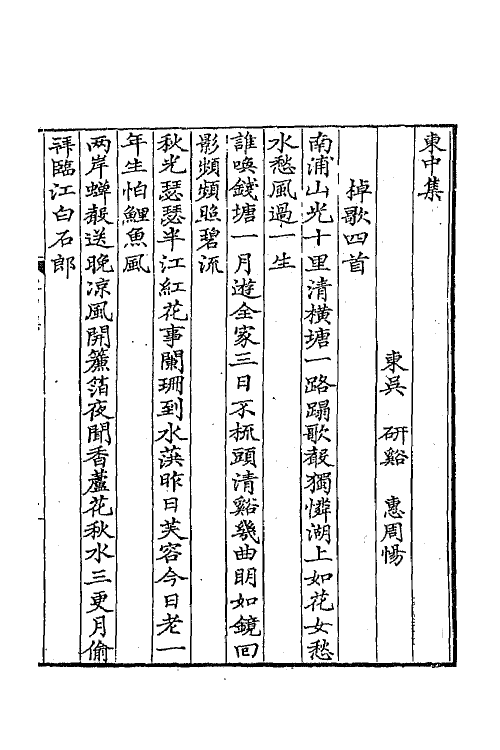 東中集
東吳　研谿　惠周惕
棹歌四首
南浦山光十里清橫塘一路蹋歌聲獨憐湖上如花女愁
水愁風過一生
誰喚錢塘一月遊全家三日不梳頭清谿幾曲明如鏡回
影頻頻照碧流
秋光瑟瑟半江紅花事闌珊到水葓昨日芙容今日老一
年生怕鯉魚風
兩岸蟬聲送晚凉風開簾箔夜聞香蘆花秋水三更月偷
拜臨江白石郎